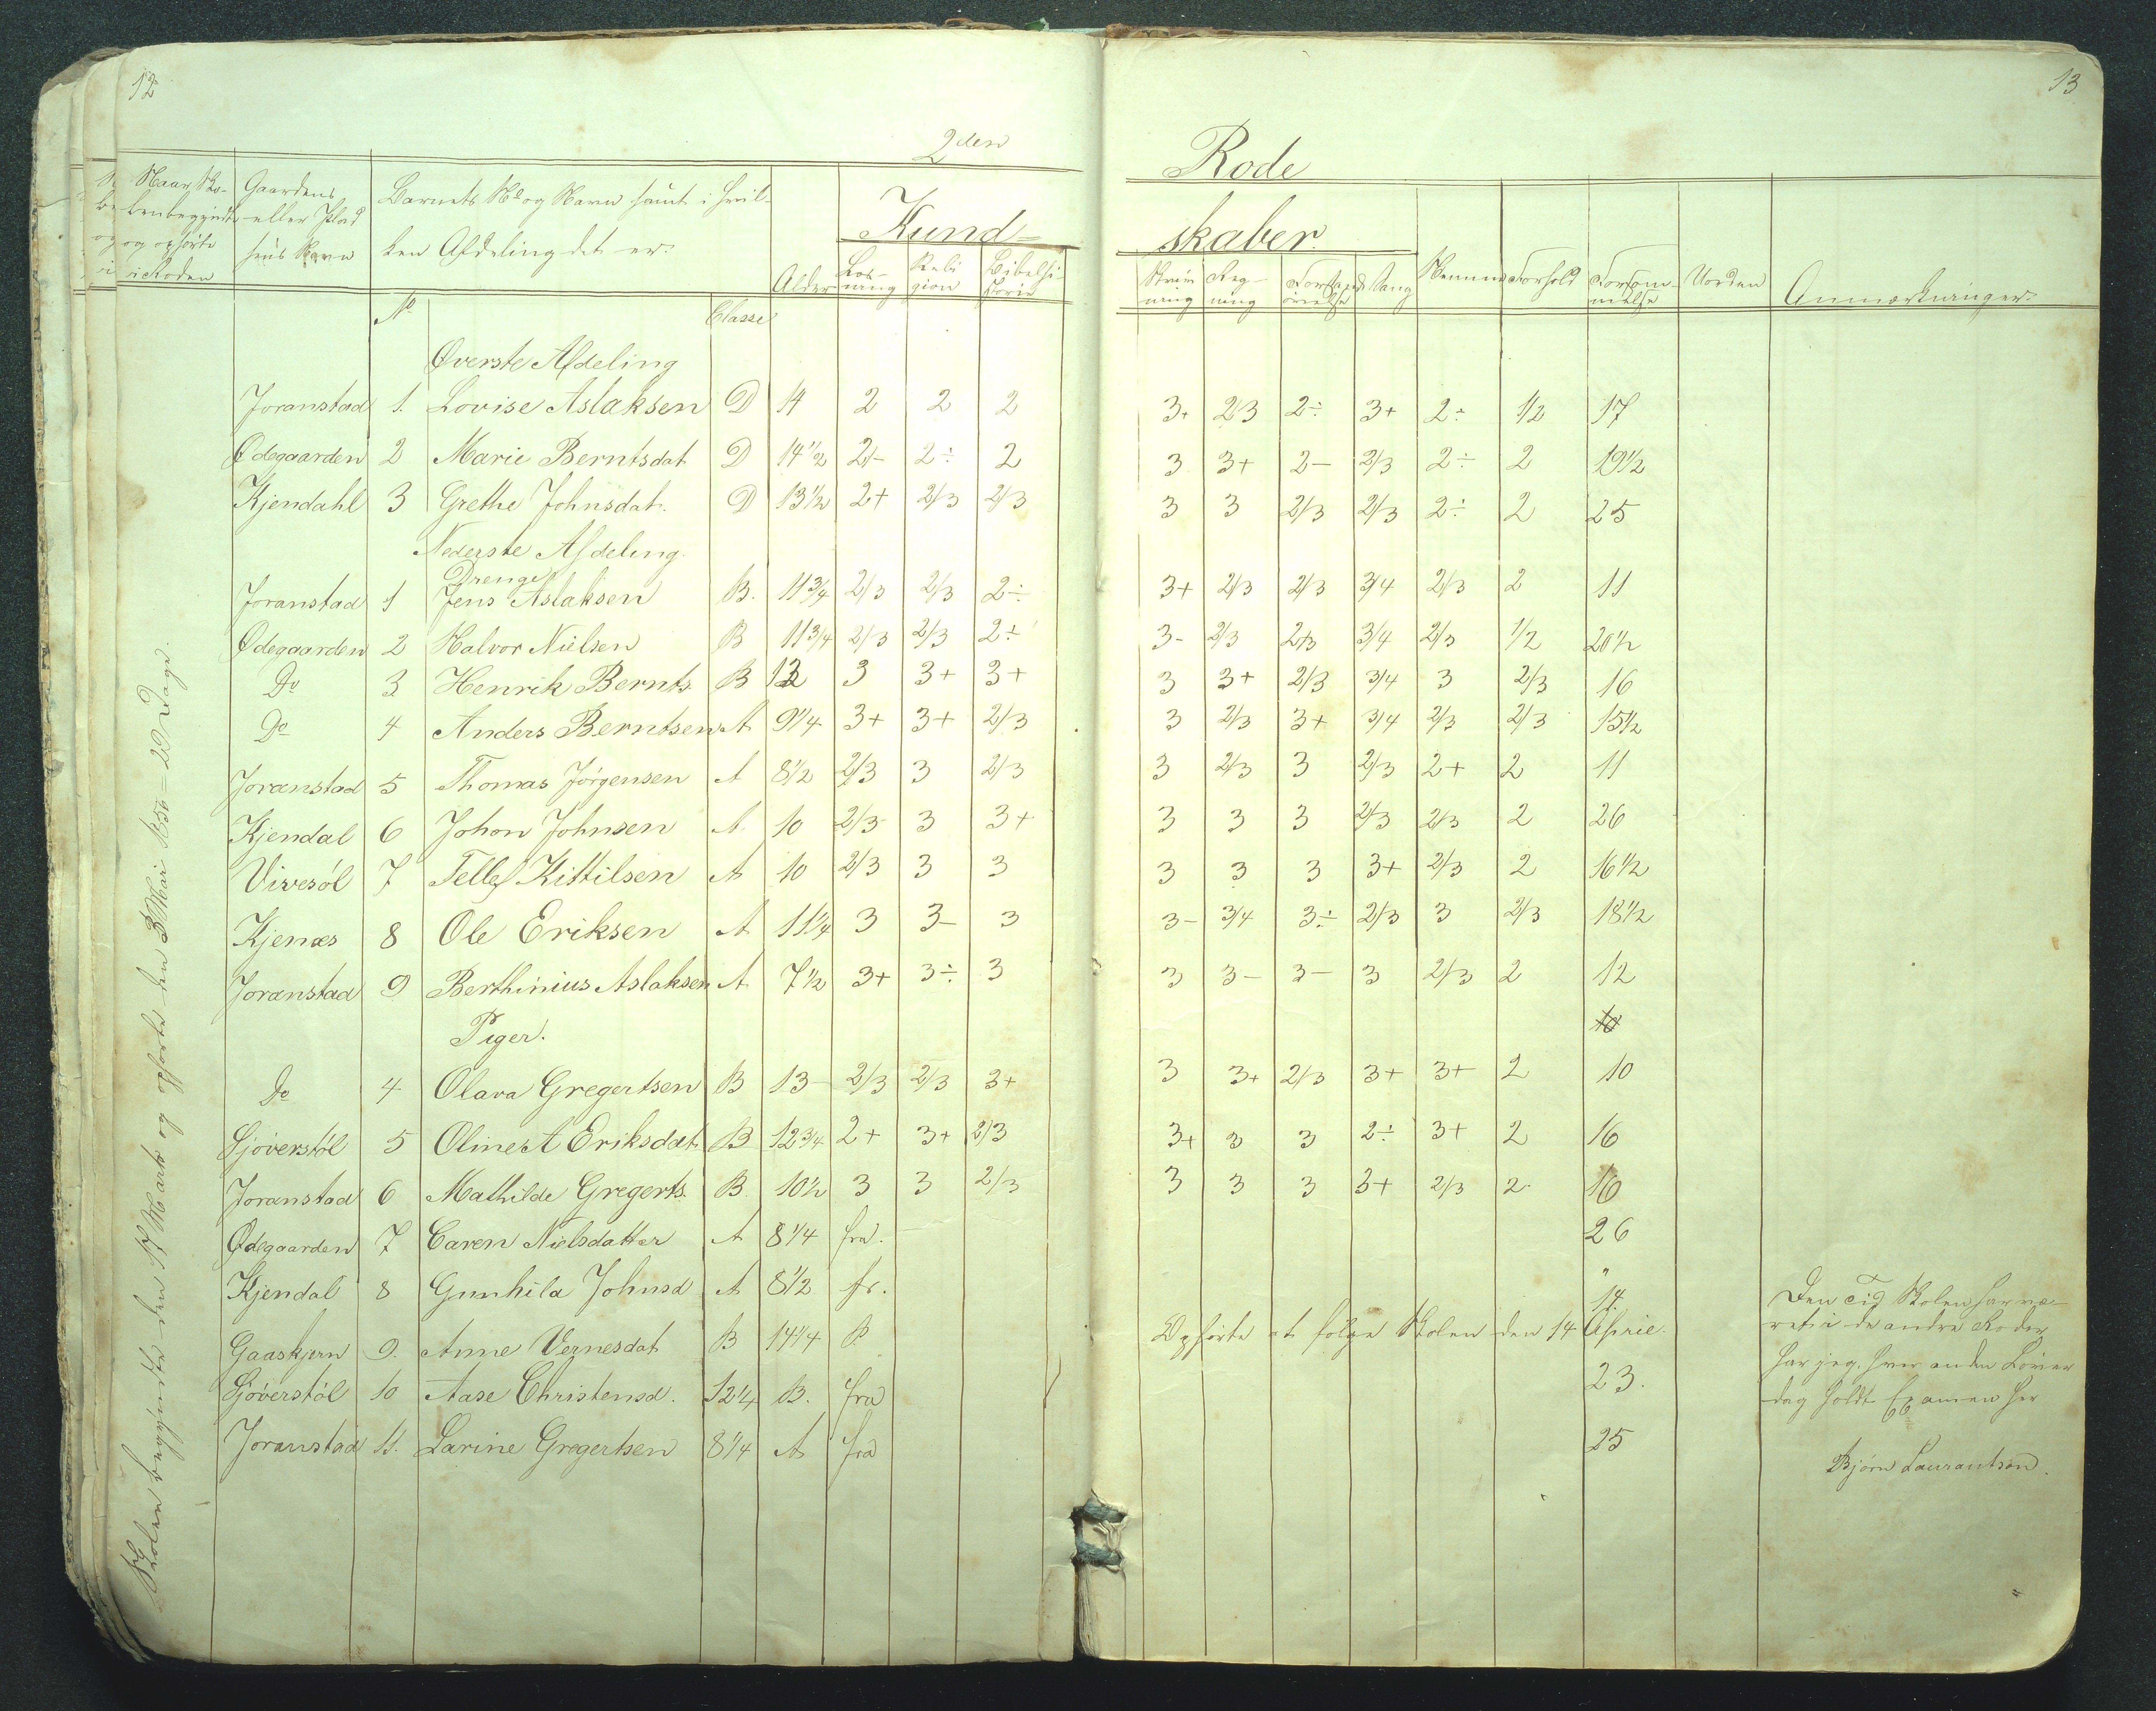 12
13
2den Rode
Naar Sko-
len begyndte
og ophørte
i Roden
Gaardens
eller Plad
sens Navn
Barnets No og Navn samt i hvil-
ken Afdeling det er.
Alder
Kund- skaber.
Læs-
ning
Reli
gion
Bibelhi-
storie
Skriv
ning
Reg-
ning
Forstands
øvelse
Sang
Nemme
Forhold
Forsøm-
melse
Uorden
Anmærkninger.
No Classe
Øverste Afdeling
Joranstad 1. Lovise Aslaksen D 14 2 2 2 3+ 2/3 2÷ 3+ 2÷ 1/2 17
Ødegaarden 2 Marie Berntsdat D 14 1/2 2- 2÷ 2 3 3+ 2- 2/3 2÷ 2 19 1/2
Kjendahl 3 Grethe Johnsdat. D 13 1/2 2+ 2/3 2/3 3 3 2/3 2/3 2÷ 2 25
Nederste Afdeling.
Drenge
Joranstad 1 Jens Aslaksen B. 11 3/4 2/3 2/3 2÷ 3+ 2/3 2/3 3/4 2/3 2 11
Ødegaarden 2 Halvor Nielsen B 11 3/4 2/3 2/3 2÷ 3- 2/3 2/3 3/4 2/3 1/2 20 1/2
Do 3 Henrik Bernts. B 12 3 3+ 3+ 3 3+ 2/3 3/4 3 2/3 16
Do 4 Anders Berntsen A 9 1/4 3+ 3+ 2/3 3 2/3 3+ 3/4 2/3 2/3 15 1/2
Joranstad 5 Thomas Jørgensen A 8 1/2 2/3 3 2/3 3 2/3 3 2/3 2+ 2 11
Kjendal 6 Johon Johnsen A. 10 2/3 3 3+ 3 3 3 2/3 2/3 2 26
Vivesøl 7 Tellef Kittilsen A 10 2/3 3 3 3 3 3 3+ 2/3 2 16 1/2
Kjenæs 8 Ole Eriksen A 11 1/4 3 3- 3 3- 3/4 3÷ 2/3 3 2/3 18 1/2
Joranstad 9 Berthinius Aslaksen A 7 1/2 3+ 3÷ 3 3 3- 3- 3 2/3 2 12
Piger. 10
Do 4 Olava Gregertsen B 13 2/3 2/3 3+ 3 3+ 2/3 3+ 3+ 2 10
Sjøverstøl 5 Oline A Eriksdat. B 12 3/4 2+ 3+ 2/3 3+ 3 3 2÷ 3+ 2 16
Joranstad 6 Mathilde Gregerts. B. 10 1/2 3 3 2/3 3 3 3 3+ 2/3 2. 16
Ødegaarden 7 Caren Nielsdatter A 8 1/4 fra. 26
Kjendal 8 Gunhild Johnsd A 8 1/2 fr. " 14.
Gaaskjern 9. Anne Vernesdat B 14 1/4 B. Ophørte at følge Skolen den 14 Aprie.
Sjøverstøl 10 Aase Christensd. 12 1/4 B. fra 23.
Joranstad 11. Larine Gregertsen 8 1/4 A fra 25
Den Tid Skolen har væ-
ret i de andre Roder
har jeg hver anden Løver
dag holdt Examen her
Bjørn Laurantsøn.
Skolen begyndte den 17 Marts og ophørte den 3 Mai 1856 - 29 Dage.